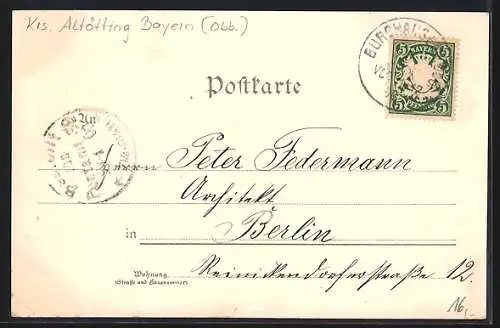 Krs. Altötting Bayern (Obb.)
BURGHAUSEN
BAYERN
5 5
5 PFENNIG 5
Postkarte
Herrn Peter Federmann
Architekt
in Berlin
Wohnung
(Straße und Hausnummer)
Reinickendorferstraße 12.
16,-